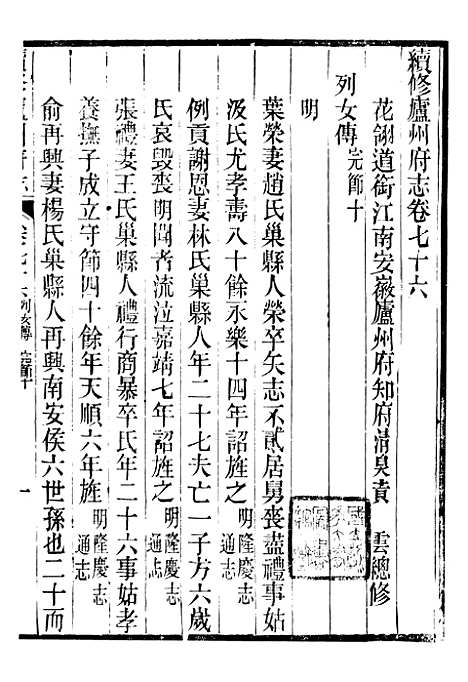 續修廬州府志卷七十六
花翎道銜江南安徽廬州府知府清泉黃 雲總修
列女傳完節十
明
葉榮妻趙氏巢縣人榮卒矢志不貳居舅喪盡禮事姑
汲氏尤孝壽八十餘永樂十四年詔旌之明隆慶志通志
例貢謝恩妻林氏巢縣人年二十七夫亡一子方六歲
氏哀毀喪明聞者流泣嘉靖七年詔旌之明隆慶志通志
張禮妻王氏巢縣人禮行商暴卒氏年二十六事姑孝
養撫子成立守節四十餘年天順六年旌明隆慶志通志
俞再興妻楊氏巢縣人再興南安侯六世孫也二十而
卷七十六列女傳 完節十 一